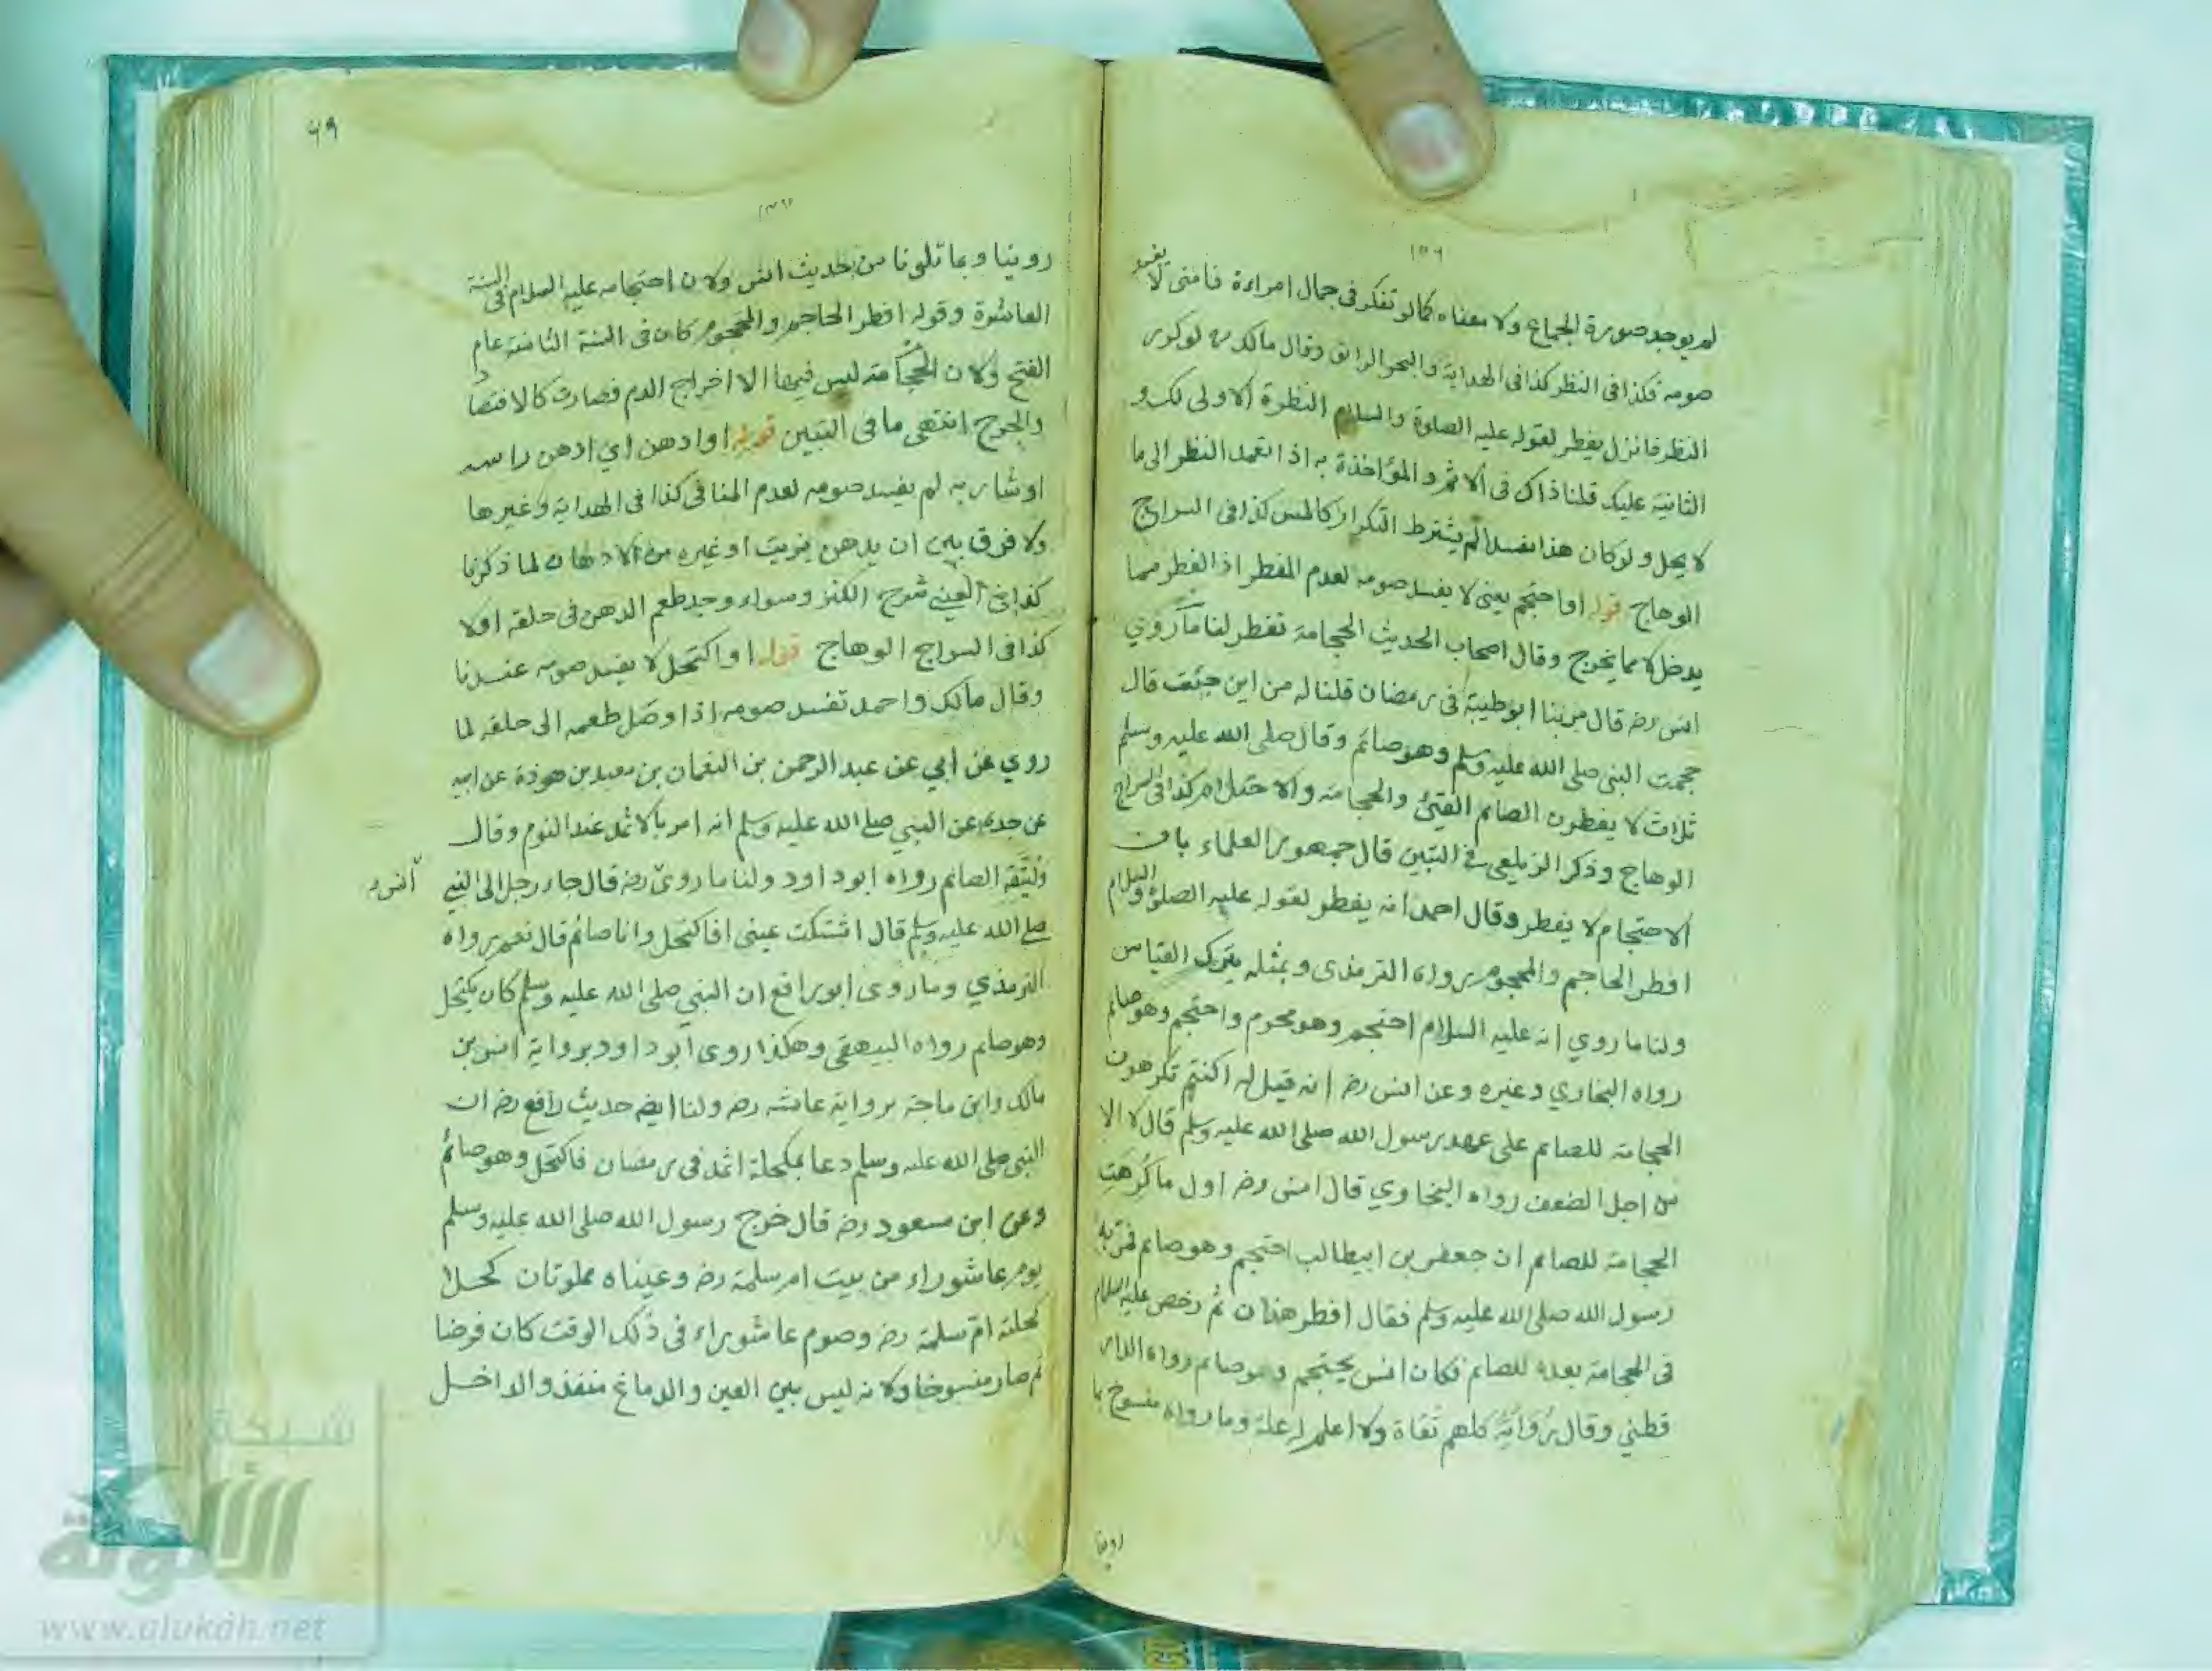 ١٥٦
لم يوجد صورة الجماع ولا معناه كما لو تفكر فى جمال امراءة فامنى لا يفسد
صومه فكذا فى النظر كذا فى الهداية والبحر الرائق وقال مالك لو كرر
النظر فانزل يفطر لقوله عليه الصلوة والسلام النظرة الاولى لك و
الثانية عليك قلنا ذاك فى الاثم والمؤاخذة به اذا تعمد النظر الى ما
لا يحل ولو كان هذا مفسدا لم يشترط التكرار كالمس كذا فى السراج
الوهاج قوله او احتجم يعنى لا يفسد صومه لعدم المفطر اذ الفطر مما
يدخل لا مما يخرج وقال اصحاب الحديث الحجامة تفطر لنا ما روي
انس رضه قال مر بنا ابو طيبة فى رمضان قلنا له من اين جئت قال
حجمت النبى صلى الله عليه وسلم وهو صائم وقال صلى الله عليه وسلم
ثلاث لا يفطرن الصائم القيئ والحجامة والاحتلام كذا فى السراج
الوهاج وذكر الزيلعى فى التبين قال جمهور العلماء بان
الاحتجام لا يفطر وقال احمد انه يفطر لقوله عليه الصلوة والسلام
افطر الحاجم والمحجوم رواه الترمذى وبمثله يترك القياس
ولنا ما روي انه عليه السلام احتجم وهو محرم واحتجم وهو صائم
رواه البخاري وغيره وعن انس رضه انه قيل له اكنتم تكرهون
الحجامة للصائم على عهد رسول الله صلى الله عليه وسلم قال لا الا
من اجل الضعف رواه البخاري قال انس رضه اول ما كُرِهَتِ
الحجامة للصائم ان جعفر بن ابيطالب احتجم وهو صائم فمر به
رسول الله صلى الله عليه وسلم فقال افطر هذان ثم رخص عليه السلام
فى الحجامة بعده للصائم فكان انس يحتجم وهو صائم رواه الدار
قطني وقال رُوَاتُهُ كلهم ثقاة ولا اعلم له علة وما رواه منسوخ بما
روينا
٦٩
روينا وبما تلونا من حديث انس ولان احتجامه عليه السلام فى السنة
العاشرة وقوله افطر الحاجم والمحجوم كان فى السنة الثامنة عام
الفتح ولان الحجامة ليس فيها الا اخراج الدم فصارت كالافتصاد
والجرح انتهى ما فى التبين قوله او ادهن اي ادهن راسه
او شاربه لم يفسد صومه لعدم المنافى كذا فى الهداية وغيرها
ولا فرق بين ان يدهن بزيت او غيره من الادهان لما ذكرنا
كذا فى العيني شرح الكنز وسواء وجد طعم الدهن فى حلقه او لا
كذا فى السراج الوهاج قوله او اكتحل لا يفسد صومه عندنا
وقال مالك واحمد تفسد صومه اذا وصل طعمه الى حلقه لما
روي عن ابي عن عبد الرحمن بن النعمان بن معبد بن هوذة عن ابيه
عن جده عن النبي صلى الله عليه وسلم انه امر بالاثمد عند النوم وقال
وليتقه الصائم رواه ابو داود ولنا ما روى رضه قال جاء رجل الى النبي
انس
صلى الله عليه وسلم قال اشتكت عينى افاكتحل وانا صائم قال نعم رواه
الترمذي وما روى ابو رافع ان النبي صلى الله عليه وسلم كان يكتحل
وهو صائم رواه البيهقى وهكذا روى ابو داود برواية انس بن
مالك وابن ماجة برواية عائشه رضه ولنا ايضا حديث رافع رضه ان
النبى صلى الله عليه وسلم دعا بمكحلة اثمد فى رمضان فاكتحل وهو صائم
وعن ابن مسعود رضه قال خرج رسول الله صلى الله عليه وسلم
يوم عاشوراء من بيت ام سلمة رضه وعيناه مملوتان كحلا
كحلته ام سلمة رضه وصوم عاشوراء فى ذلك الوقت كان فرضا
ثم صار منسوخا ولانه ليس بين العين والدماغ منفذ والداخل
شبكة
الألوكة
www.alukah.net